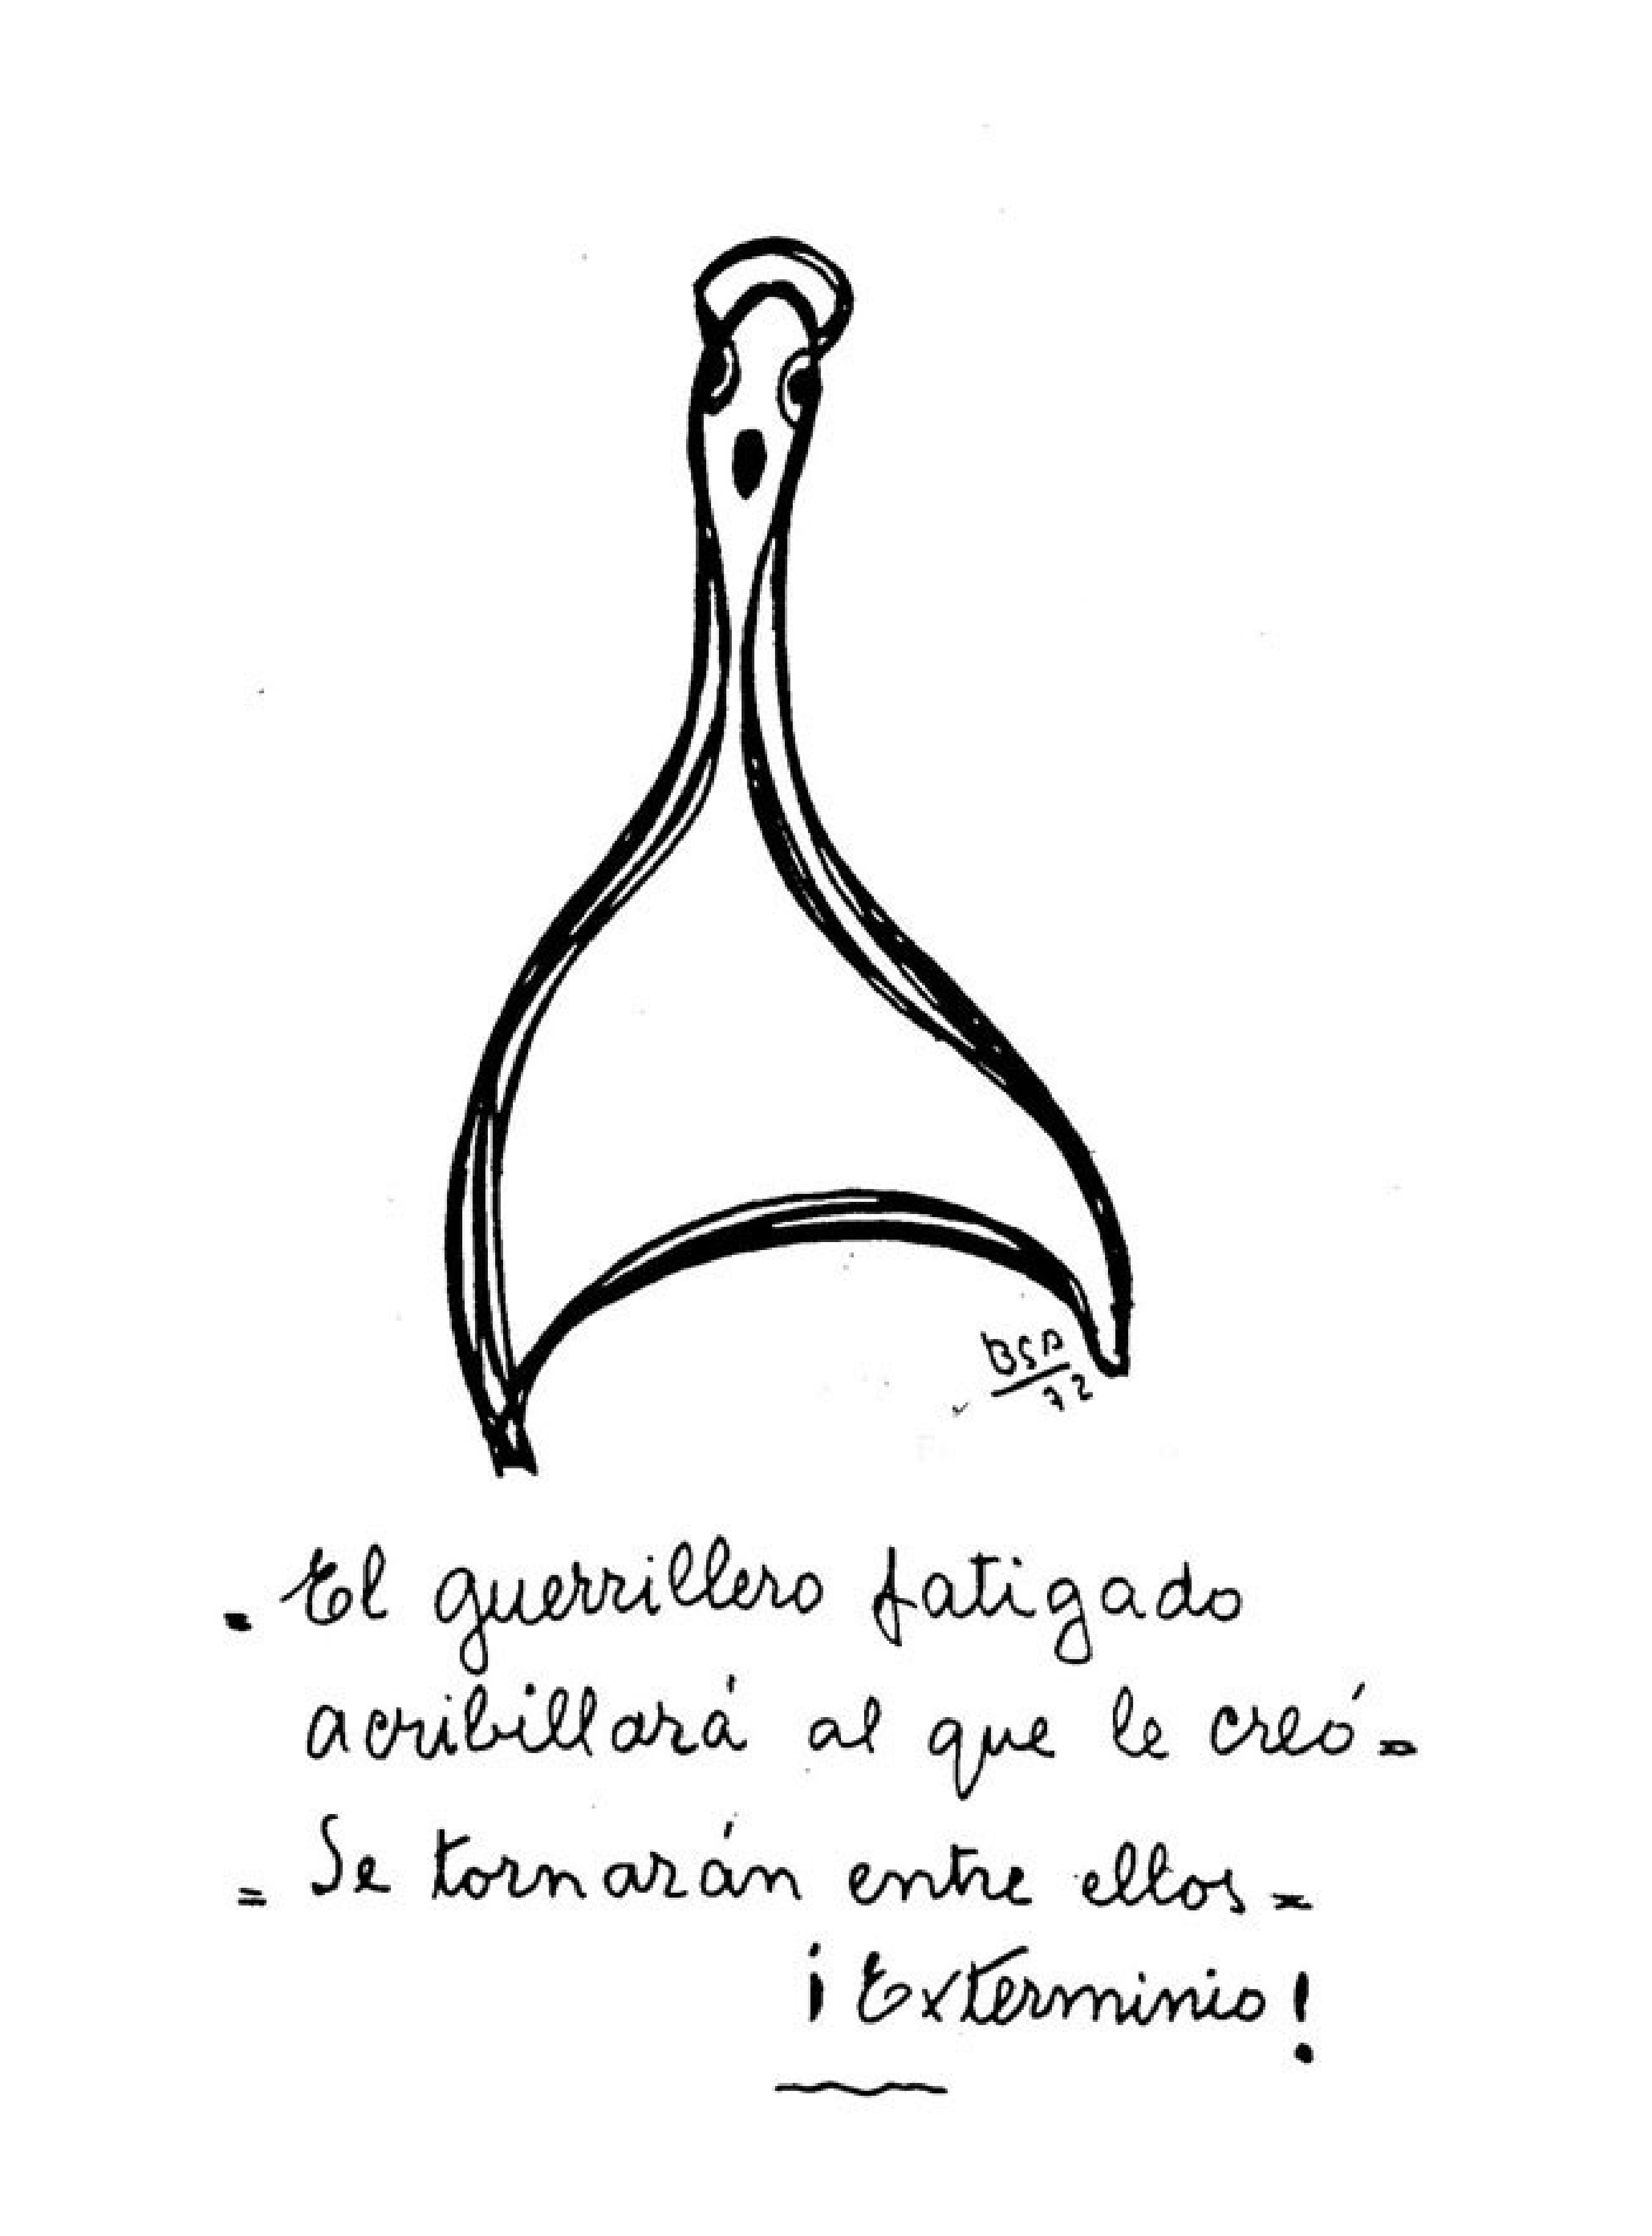 BSP
72
. El guerrillero fatigado
acribillará al que le creó.=
= Se tornarán entre ellos.=
¡Exterminio!